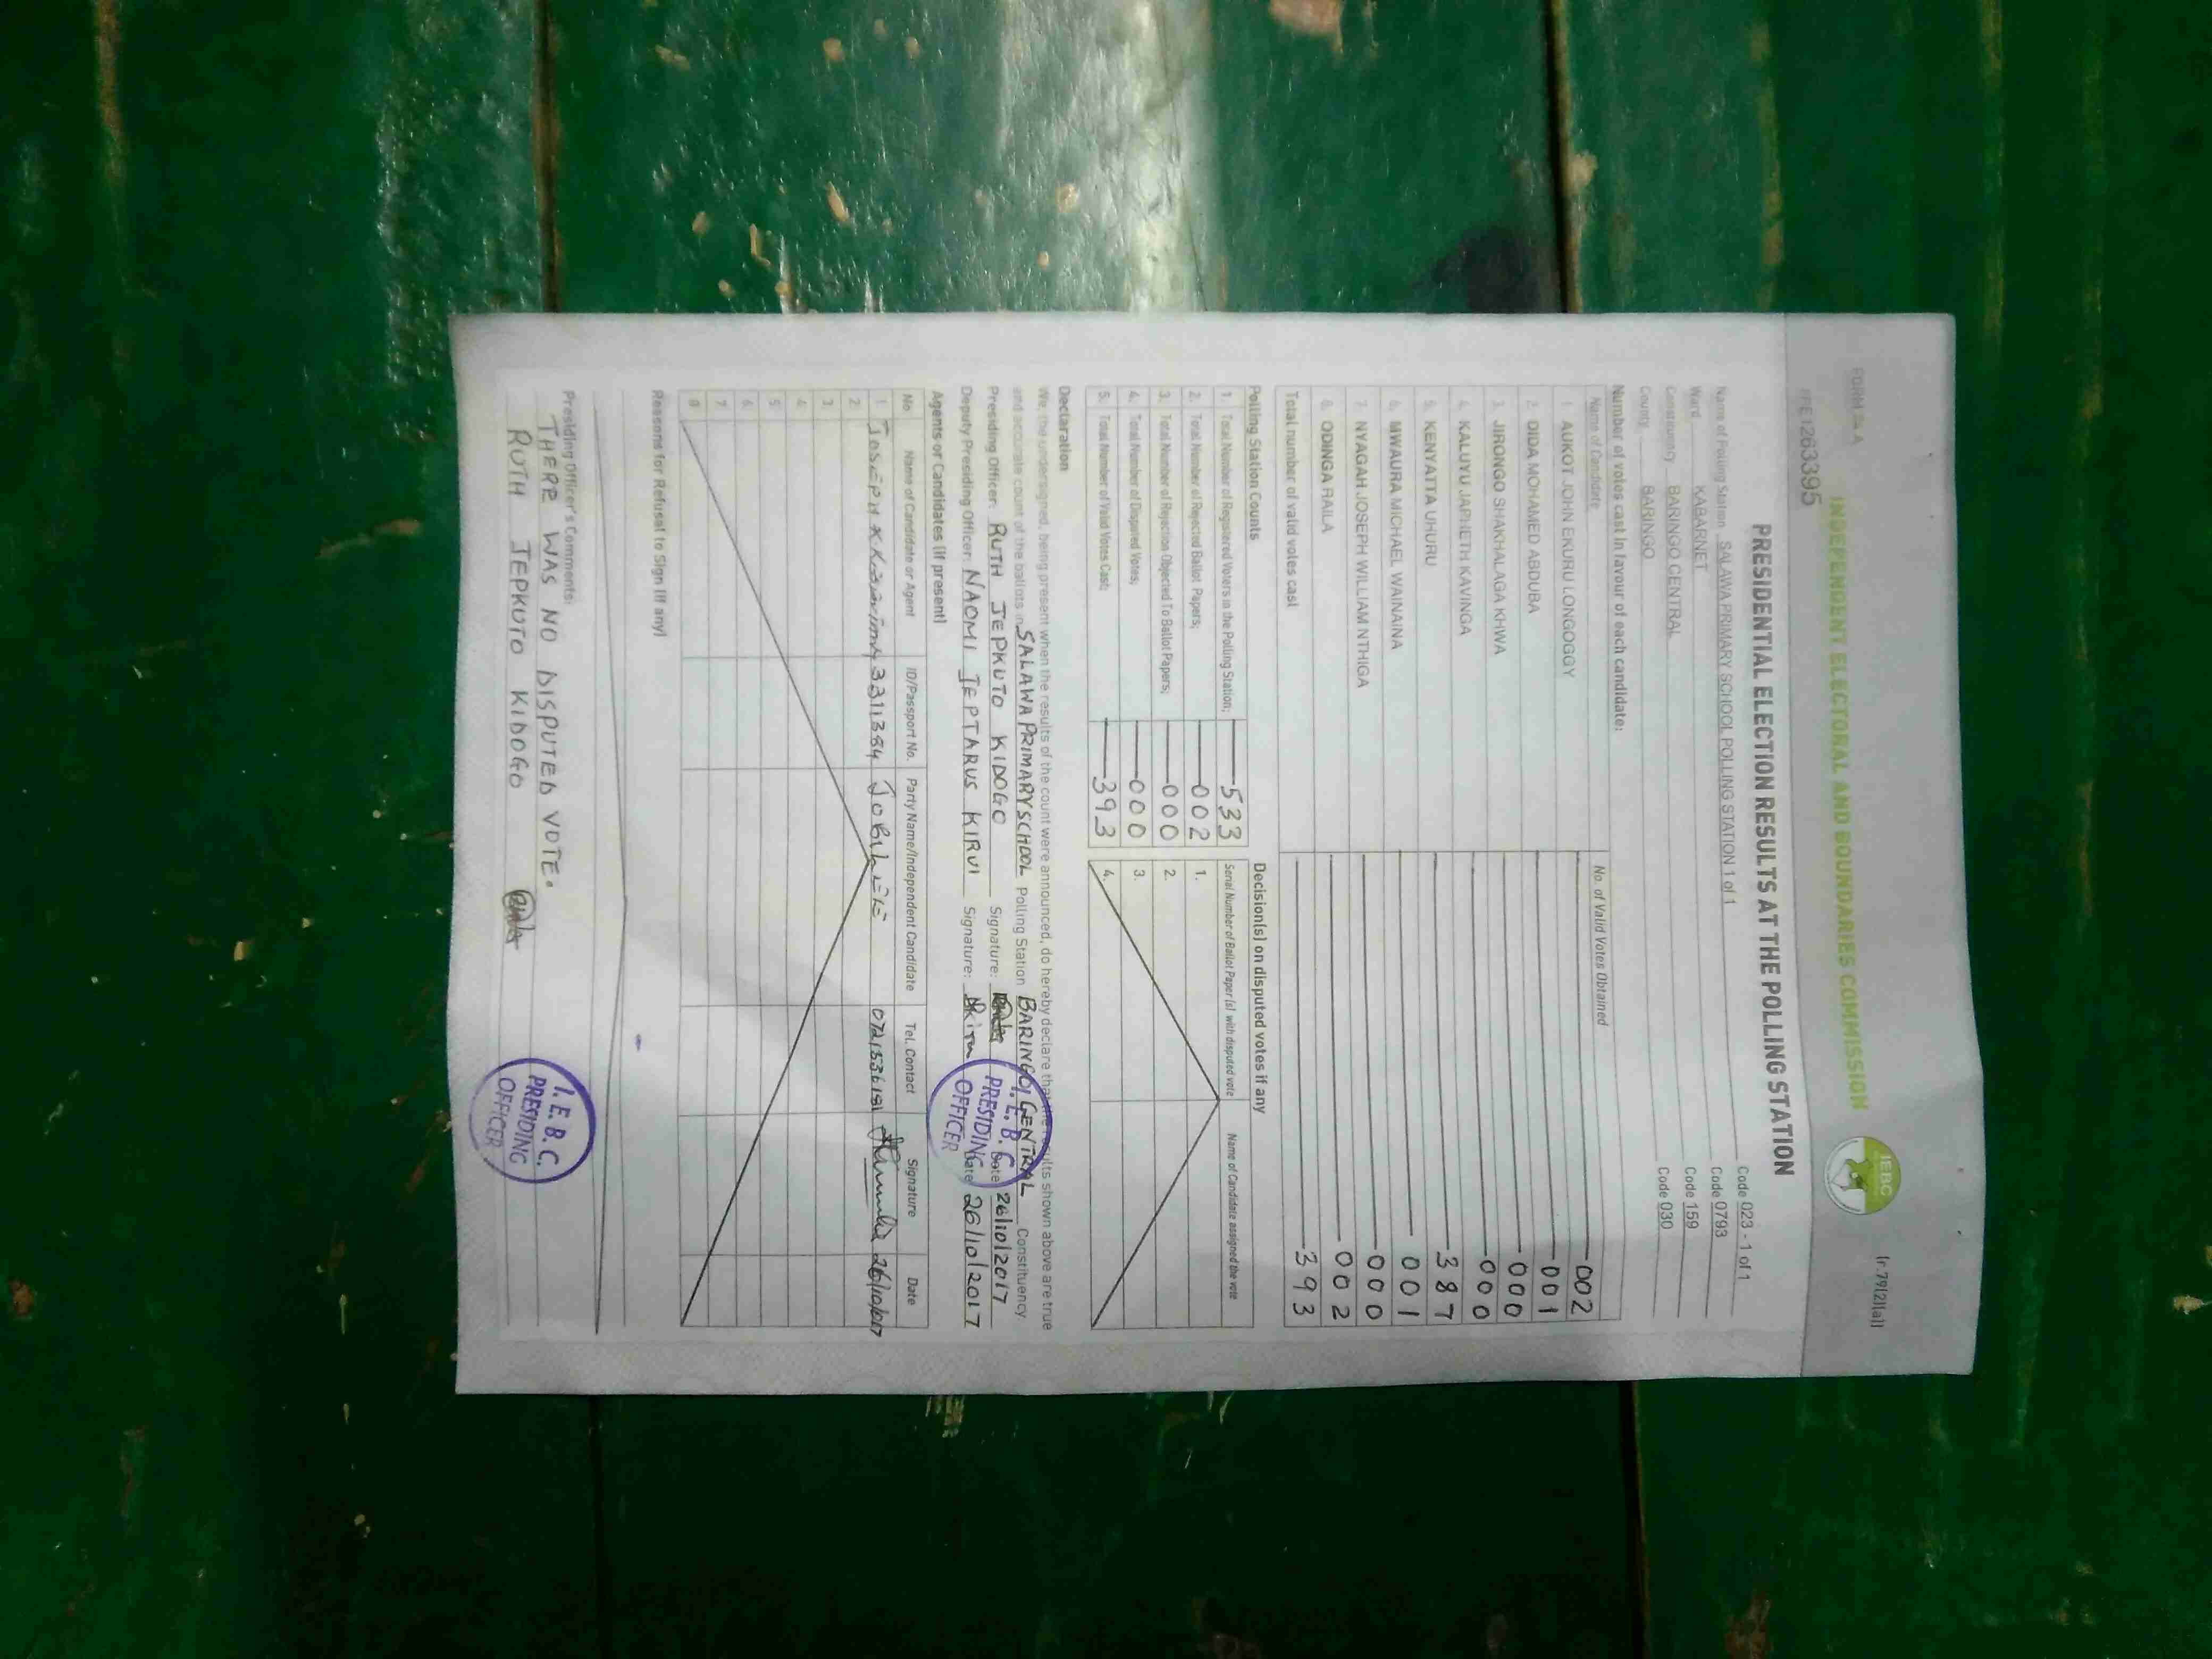 FORM 34 A (r.79(2)(a))
INDEPENDENT ELECTORAL AND BOUNDARIES COMMISSION
IEBC
1263395
PRESIDENTIAL ELECTION RESULTS AT THE POLLING STATION
Name of Polling Station SALAWA PRIMARY SCHOOL POLLING STATION 1 of 1 Code 023 - 1 of 1
Ward KABARNET Code 0793
Constituency BARINGO CENTRAL Code 159
County BARINGO Code 030
Number of votes cast in favour of each candidate:
Name of Candidate No. of Valid Votes Obtained
1. AUKOT JOHN EKURU LONGOGGY 002
2. DIDA MOHAMED ABDUBA 001
3. JIRONGO SHAKHALAGA KHWA 000
4. KALUYU JAPHETH KAVINGA 000
5. KENYATTA UHURU 387
6. MWAURA MICHAEL WAINAINA 001
7. NYAGAH JOSEPH WILLIAM NTHIGA 000
8. ODINGA RAILA 002
Total number of valid votes cast 393
Polling Station Counts Decision(s) on disputed votes if any
1. Total Number of Registered Voters in the Polling Station; 533 Serial Number of Ballot Paper (s) with disputed vote Name of Candidate assigned the vote
2. Total Number of Rejected Ballot Papers; 002 1.
3. Total Number of Rejection Objected To Ballot Papers; 000 2.
4. Total Number of Disputed Votes; 000 3.
5. Total Number of Valid Votes Cast: 393 4.
Declaration
We, the undersigned, being present when the results of the count were announced, do hereby declare that the results shown above are true
and accurate count of the ballots in SALAWA PRIMARY SCHOOL Polling Station BARINGO CENTRAL Constituency
Presiding Officer: RUTH JEPKUTO KIDOGO Signature: Date 26/10/2017
Deputy Presiding Officer: NAOMI JEPTARUS KIRUI Signature: Date 26/10/2017
I.E.B.C.
PRESIDING
OFFICER
Agents or Candidates (if present)
No Name of Candidate or Agent ID/Passport No. Party Name/Independent Candidate Tel. Contact Signature Date
1 JOSEPH K 3311384 JUBILEE 0721536181 26/10/2017
2
3
4
5
6
7
8
Reasons for Refusal to Sign (if any)
Presiding Officer's Comments:
THERE WAS NO DISPUTED VOTE.
RUTH JEPKUTO KIDOGO
I.E.B.C.
PRESIDING
OFFICER